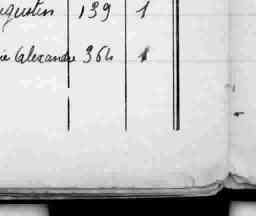 ugustin 139 1
ie Alexandre 364 1